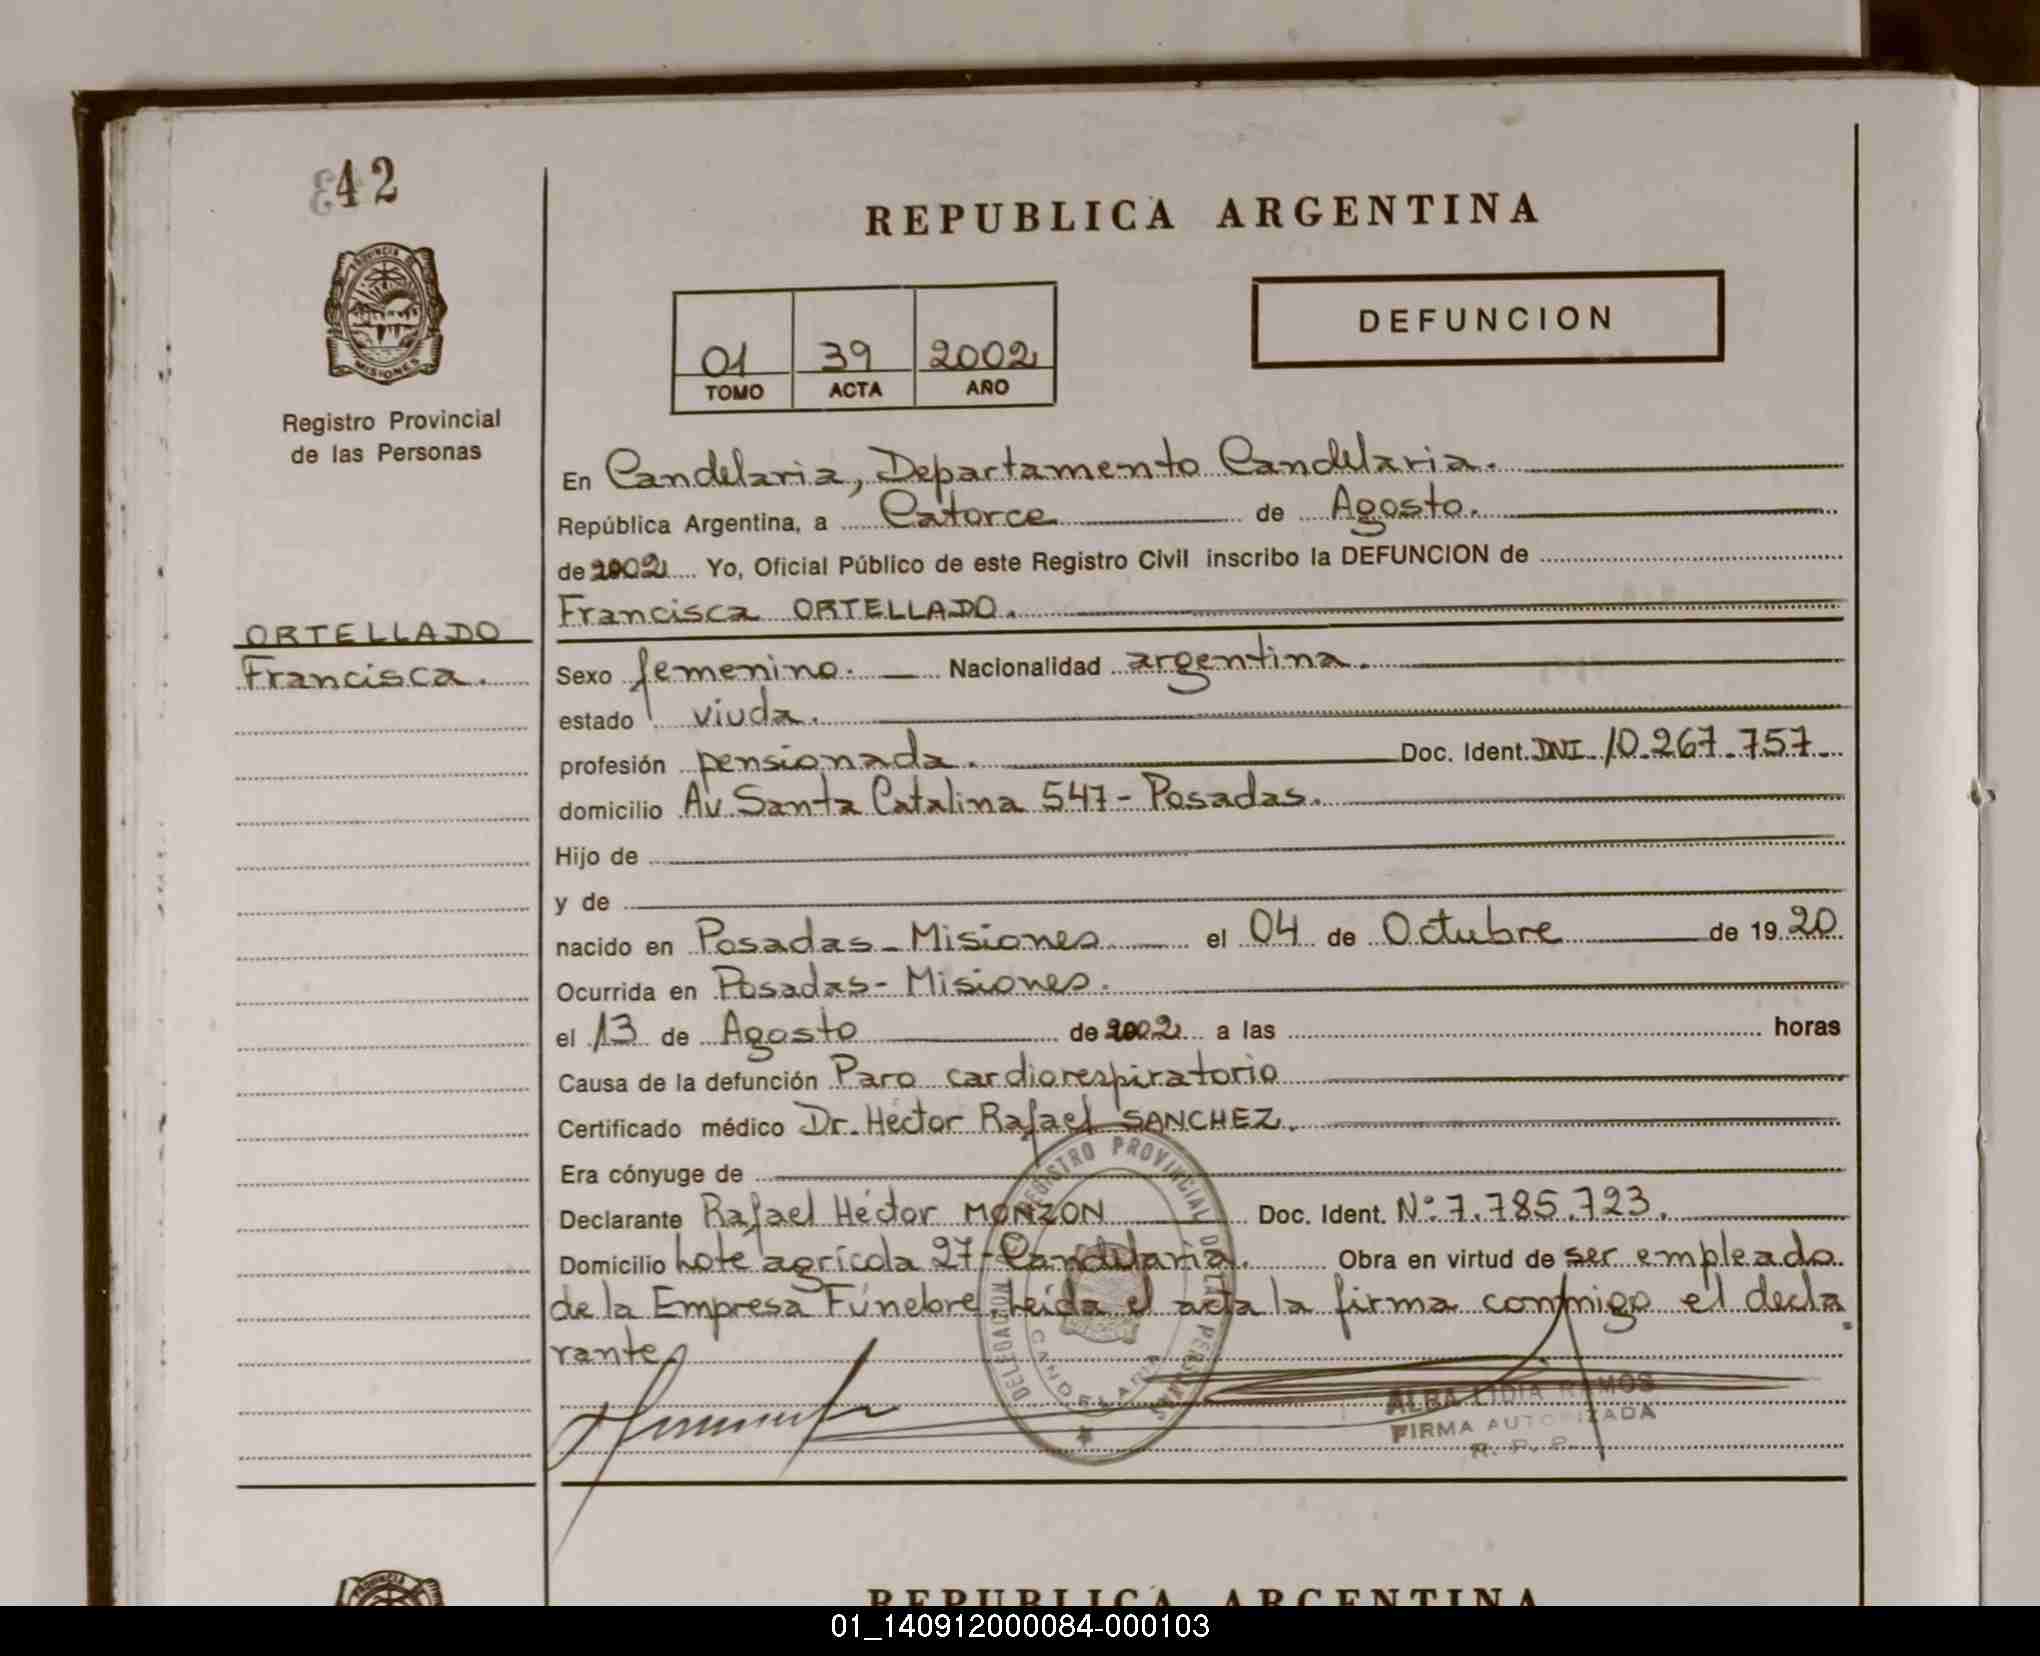 42
PROVINCIA DE
MISIONES
Registro Provincial
de las Personas
REPUBLICA ARGENTINA
01 39 2002
TOMO ACTA AÑO
DEFUNCION
En Candelaria, Departamento Candelaria.
República Argentina, a Catorce de Agosto.
de 2002 Yo, Oficial Público de este Registro Civil inscribo la DEFUNCION de
Francisca ORTELLADO.
ORTELLADO
Francisca.
Sexo femenino. Nacionalidad argentina.
estado viuda.
profesión pensionada. Doc. Ident. DNI 10.267.757
domicilio Av. Santa Catalina 547 - Posadas.
Hijo de
y de
nacido en Posadas - Misiones el 04 de Octubre de 1920
Ocurrida en Posadas - Misiones.
el 13 de Agosto de 2002 a las horas
Causa de la defunción Paro cardiorespiratorio
Certificado médico Dr. Héctor Rafael SANCHEZ.
Era cónyuge de
Declarante Rafael Héctor MONZON Doc. Ident. Nº 7.785.723.
Domicilio Lote agrícola 27 - Candelaria. Obra en virtud de ser empleado
de la Empresa Fúnebre. Leída el acta la firma conmigo el decla
rante
REGISTRO PROVINCIAL DE LAS PERSONAS
DELEGAIZON CANDELARIA
ALBA LIDIA RAMOS
FIRMA AUTORIZADA
R. P. P.
PROVINCIA
REPUBLICA ARGENTINA
01_140912000084-000103